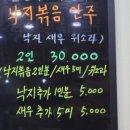 낙지볶음 안주
낙지 새우 쥐오라
2인 30,000
(낙지볶음2인분/새우5미/쥐오라
낙지추가 1인분 5,000
새우 추가 5미 5,000